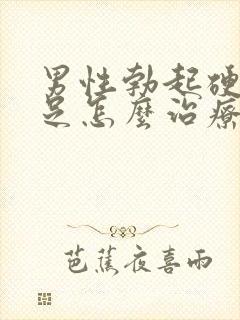 男性勃起硬
足怎麼治療
芭蕉夜喜雨